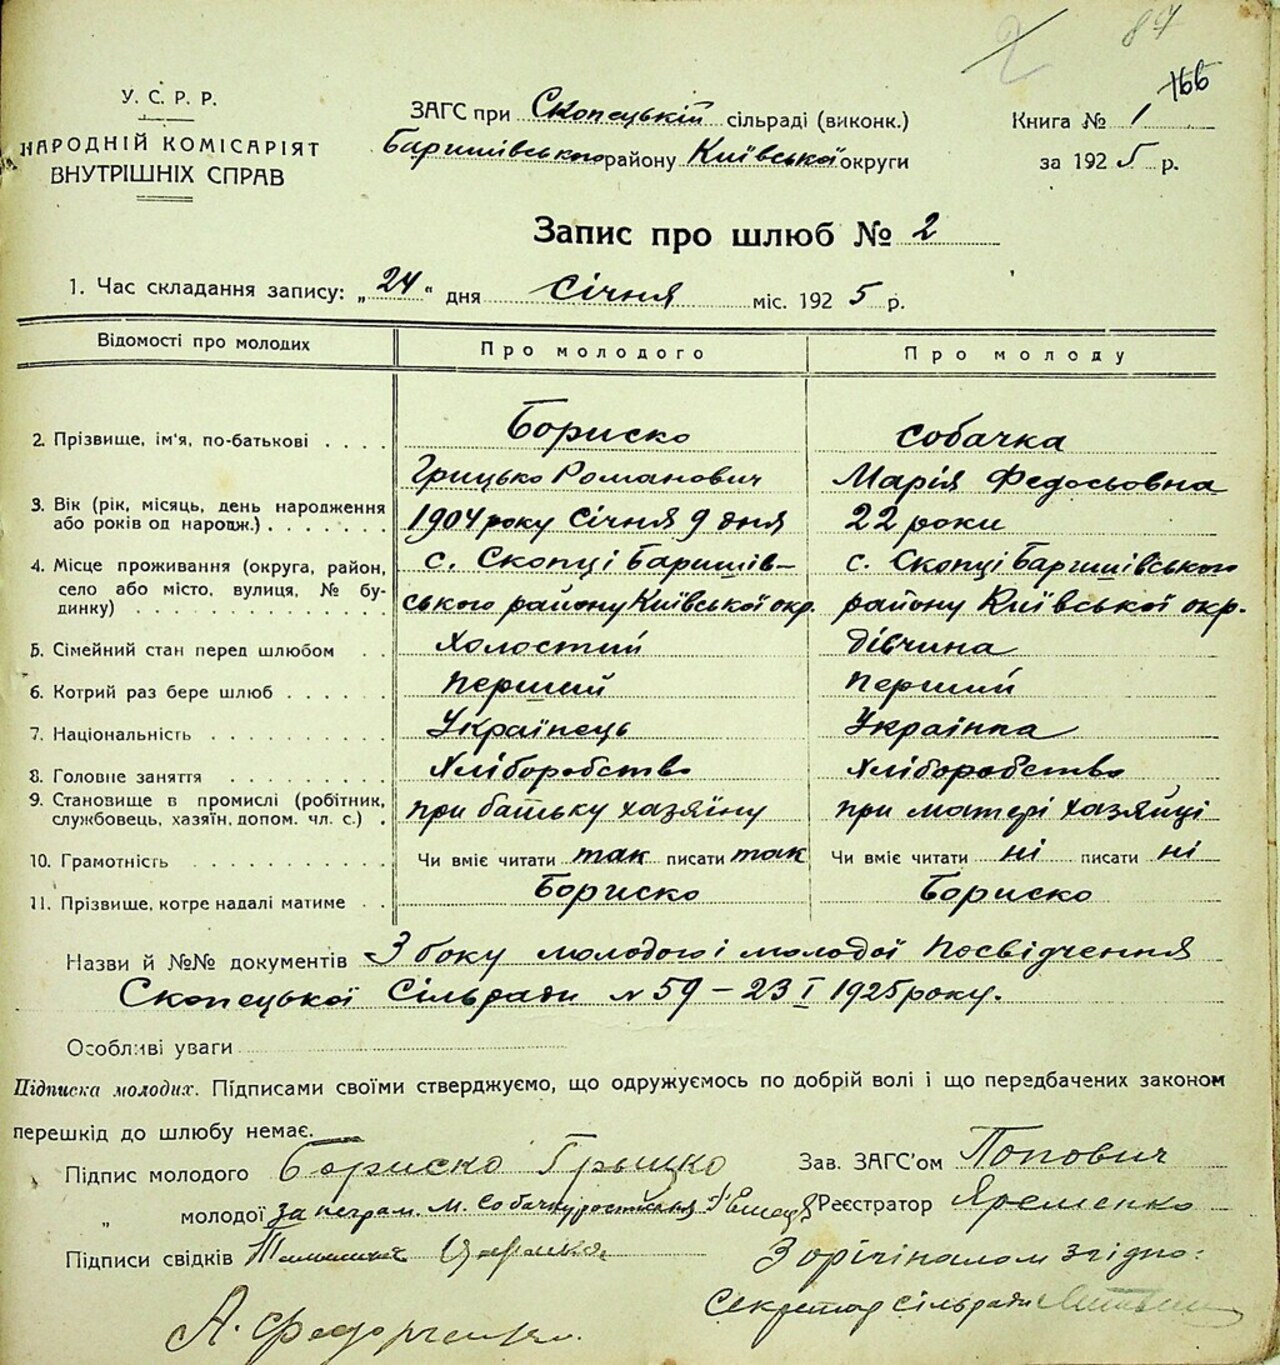 2 87
166
У. С. Р. Р.
НАРОДНІЙ КОМІСАРІЯТ
ВНУТРІШНІХ СПРАВ
ЗАГС при Скопецькій сільраді (виконк.)
Баришівського району Київської округи
Книга № 1
за 1925 р.
Запис про шлюб № 2
1. Час складання запису: „24" дня Січня міс. 1925 р.
Відомості про молодих Про молодого Про молоду
2. Прізвище, ім'я, по-батькові . . . . Бориско Собачка
Грицько Романович Марія Федосьовна
3. Вік (рік, місяць, день народження
або років од народж.) . . . . . . . 1904 року Січня 9 дня 22 роки
4. Місце проживання (округа, район, с. Скопці Баришів- с. Скопці Баришівського
село або місто, вулиця, № бу-
динку) . . . . . . . . . . . . . . ського району Київської окр. району Київської окр.
5. Сімейний стан перед шлюбом . . Холостий дівчина
6. Котрий раз бере шлюб . . . . . . перший перший
7. Національність . . . . . . . . . . Українець Українка
8. Головне заняття . . . . . . . . . Хліборобство Хліборобство
9. Становище в промислі (робітник,
службовець, хазяїн, допом. чл. с.) . при батьку хазяїну при матері хазяйці
10. Грамотність . . . . . . . . . . . Чи вміє читати так писати так Чи вміє читати ні писати ні
11. Прізвище, котре надалі матиме . . Бориско Бориско
Назви й №№ документів З боку молодого і молодої посвідчення
Скопецької Сільради № 59 – 23 I 1925 року.
Особливі уваги
Підписка молодих. Підписами своїми стверджуємо, що одружуємось по добрій волі і що передбачених законом
перешкід до шлюбу немає.
Підпис молодого Бориско Грыцко
„ молодої за неграм. М. Собачку
Підписи свідків
А. Федорченко
Зав. ЗАГС'ом Попович
Реєстратор Яременко
З орігіналом згідно:
Секретар сільради